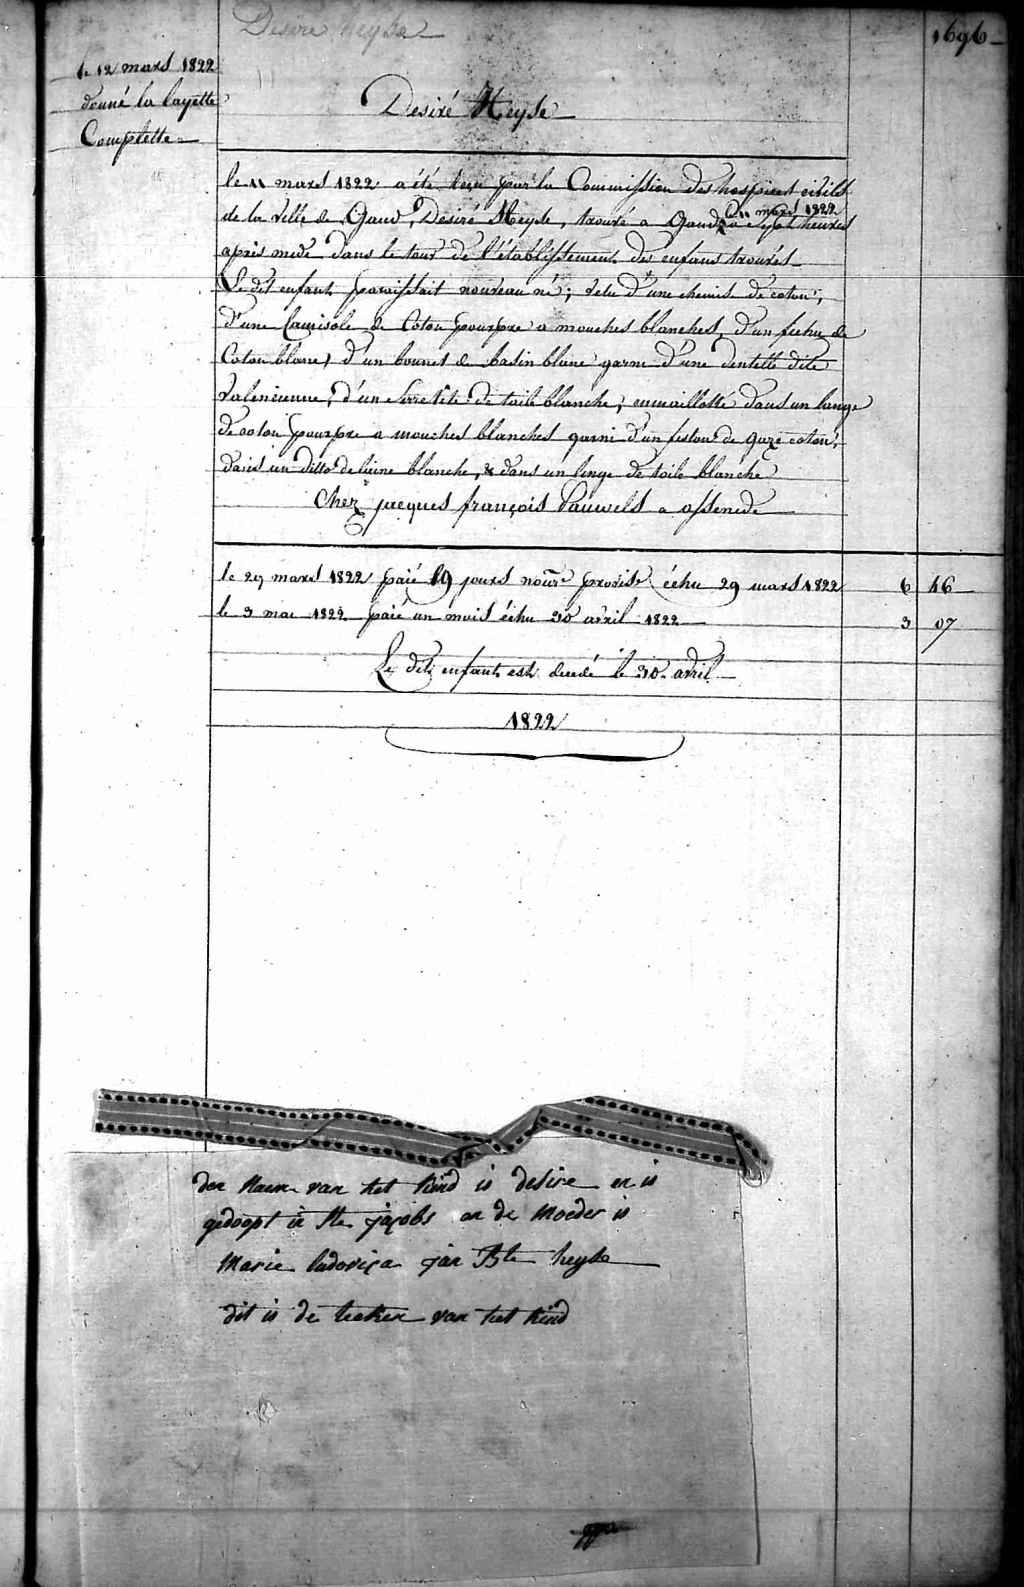 Desiré heyse
1696
le 12 mars 1822
donné la layette
Complette
Desiré Heyse
le 11 mars 1822 a été reçu par la Commission des hospices civils
de la ville de Gand, Desiré Heyse, trouvé a Gand le 11 mars 1822 a sept heures
après midi dans le tour de l'établissement des enfans trouvés
Le dit enfant paroissait nouveau né; vetu d'une chemise de coton;
d'une Camisole de Coton pourpre a mouches blanches, d'un fichu de
Coton blanc, d'un bonnet de basin blanc garni d'une dentelle dite
valencienne, d'un serre tête de toile blanche; emmaillotté dans un lange
de coton pourpre a mouches blanches garni d'un feston de gaze coton,
dans un ditto de laine blanche, & dans un linge de toile blanche
Chez jacques françois Pauwels a assenede
le 29 mars 1822 paié 19 jours nourre provise échu 29 mars 1822 6 46
le 3 mai 1822 paié un mois échu 30 avril 1822 3 07
Le dit enfant est decedé le 30 avril
1822
den Naem van het kind is desire en is
gedoopt in Ste jacobs en de Moeder is
Marie ludovica jan Bte heyse
dit is de teeken van het kind